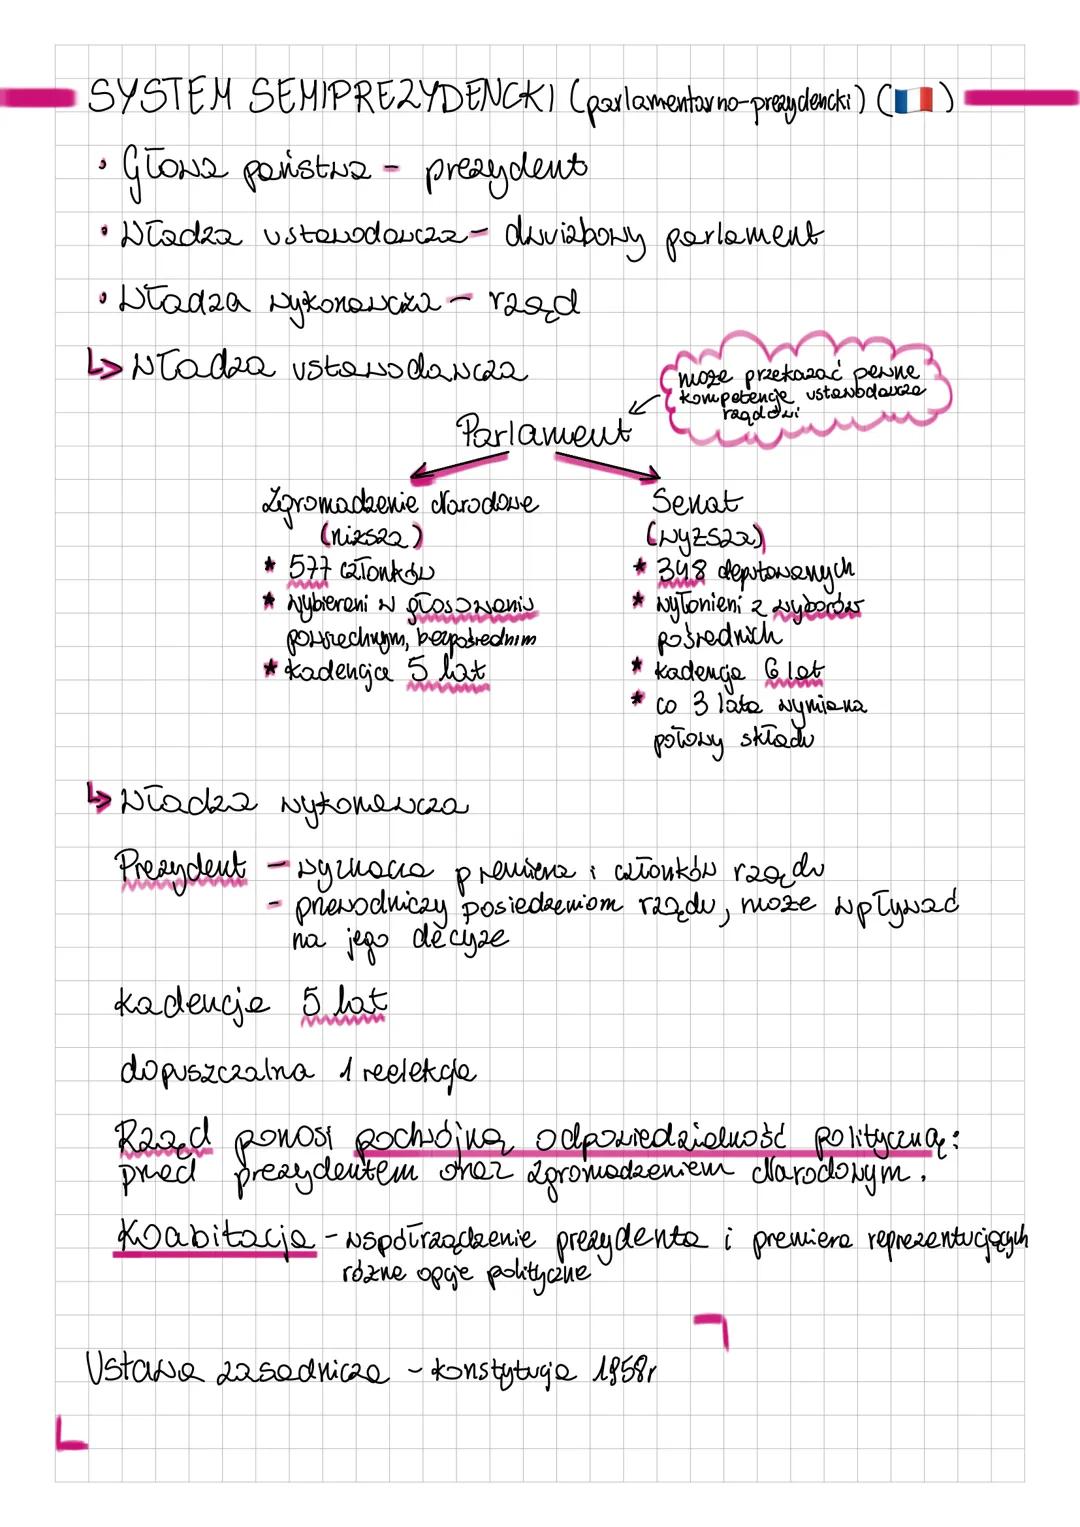 SYSTEM SEMIPREZYDENCKI (parlamentarno-prezydencki) (🇫🇷)
• Głowa państwa - prezydent
• Władza ustawodawcza - dwuizbowy parlament
• Władza wykonawcza - rząd
↳ Władza ustawodawcza
może przekazać pewne
kompetencje ustawodawcze
rządowi
Parlament
Zgromadzenie Narodowe
(niższa)
* 577 członków
* wybierani w głosowaniu
powszechnym, bezpośrednim
* kadencja 5 lat
Senat
(wyższa)
* 348 deputowanych
* wyłonieni z wyborów
pośrednich
* kadencja 6 lat
* co 3 lata wymiana
połowy składu
↳ Władza wykonawcza
Prezydent - wyznacza premiera i członków rządu
- przewodniczy posiedzeniom rządu, może wpływać
na jego decyzje
kadencja 5 lat
dopuszczalna 1 reelekcja
Rząd ponosi podwójną odpowiedzialność polityczną:
przed prezydentem oraz Zgromadzeniem Narodowym.
Koabitacja - współrządzenie prezydenta i premiera reprezentujących
różne opcje polityczne
Ustawa zasadnicza - konstytucja 1958r